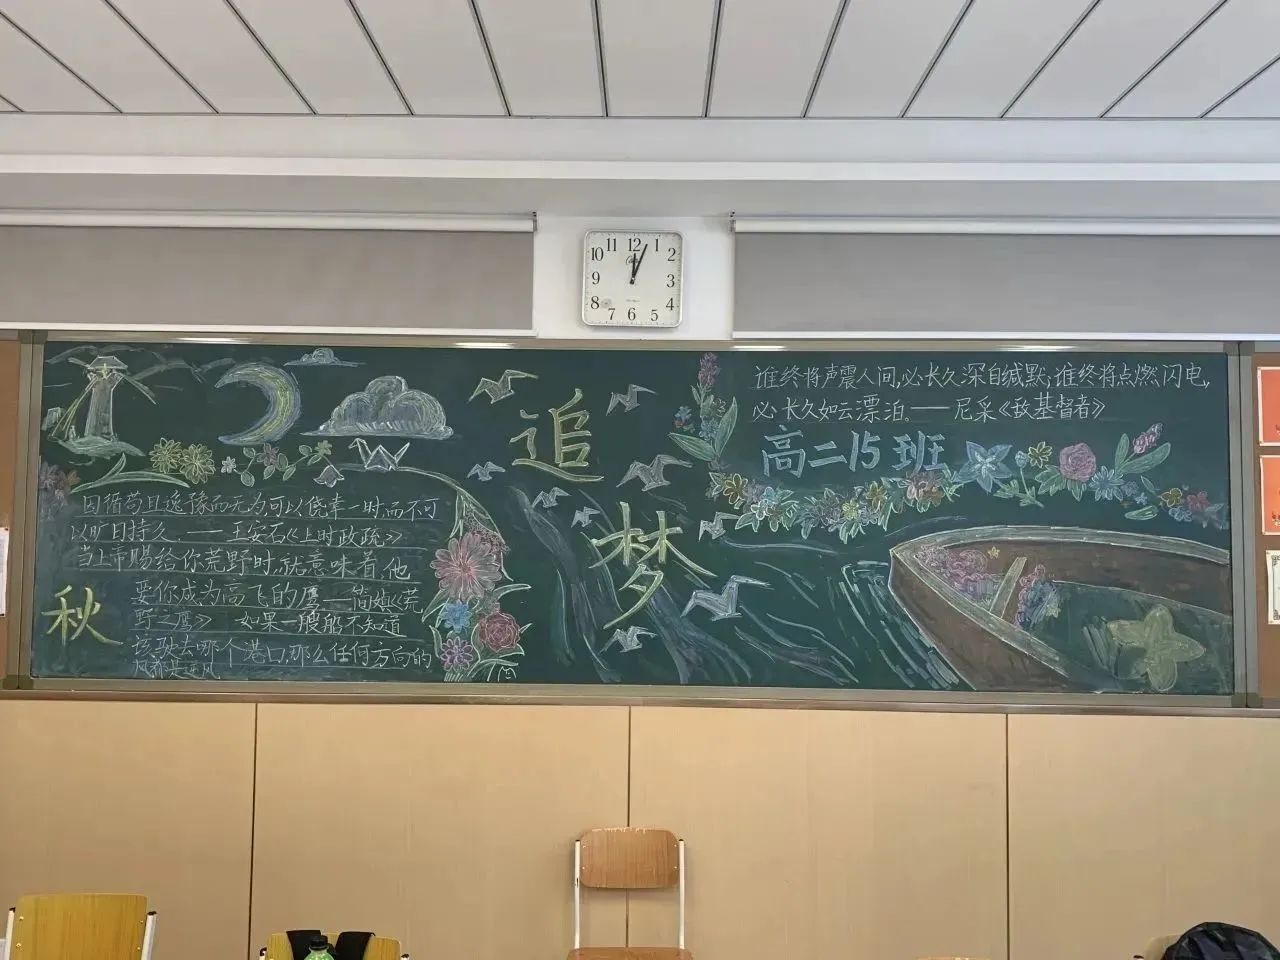 11 12 1
10 2
9 3
8 4
7 6 5
谁终将声震人间,必长久深自缄默;谁终将点燃闪电,
必长久如云漂泊。——尼采《敌基督者》
追
梦
高二15班
因循苟且逸豫而无为,可以侥幸一时,而不可
以旷日持久。——王安石《上时政疏》
当上帝赐给你荒野时,就意味着,他
要你成为高飞的鹰——简媜《荒
野之鹰》 如果一艘船不知道
该驶去哪个港口,那么任何方向的
风都是逆风
秋